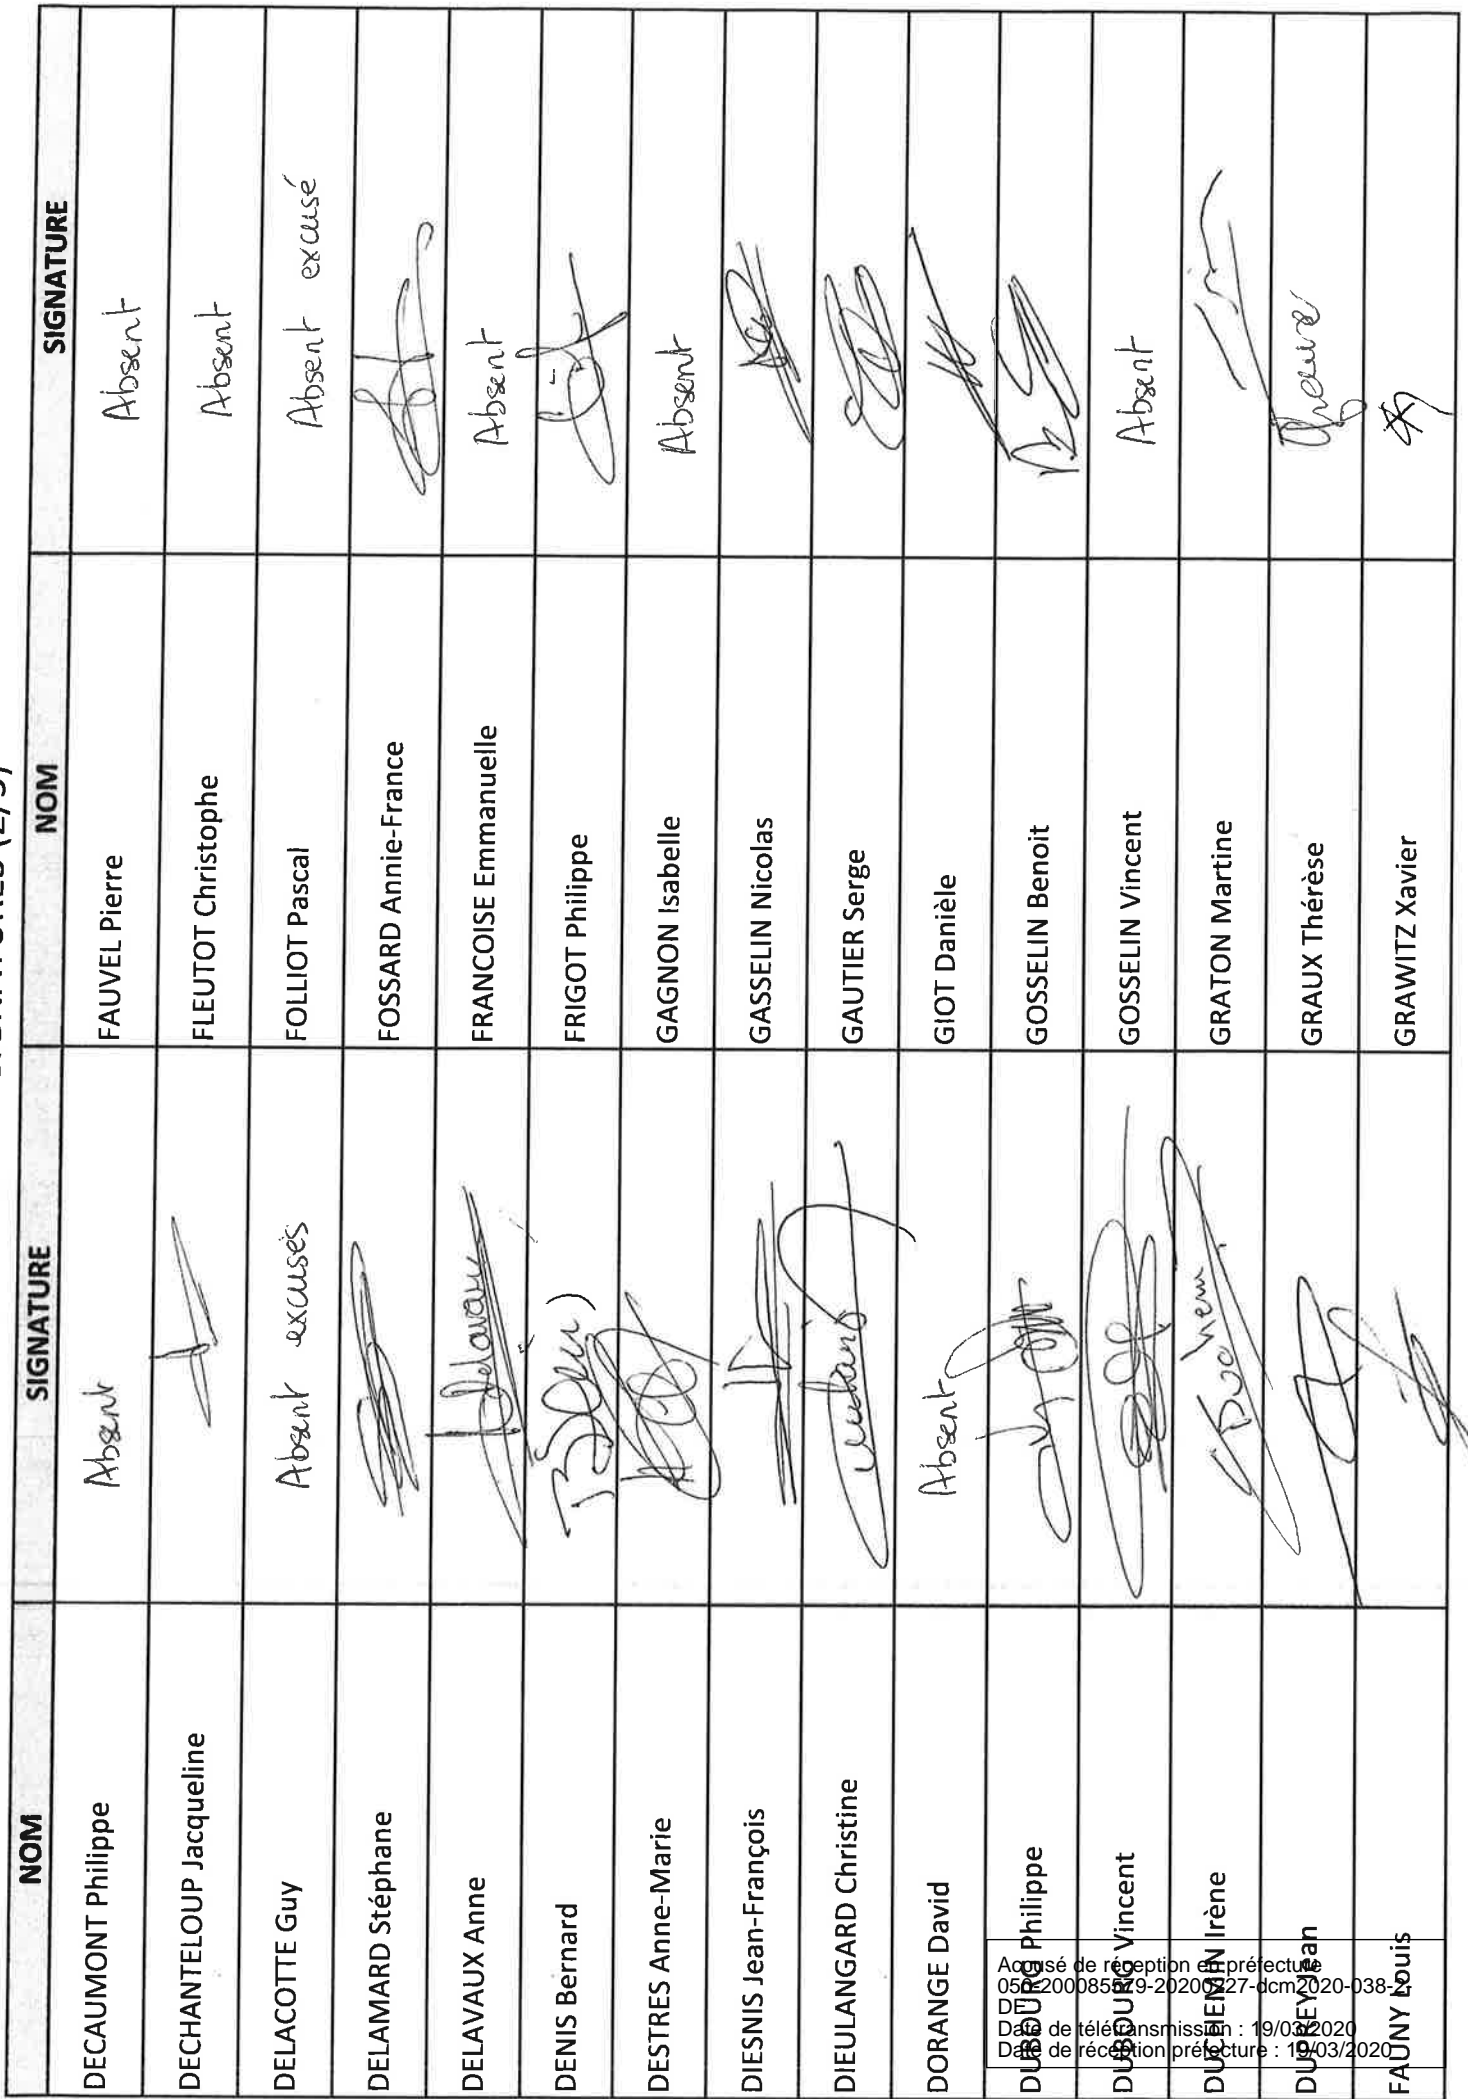 NOM SIGNATURE NOM SIGNATURE
DECAUMONT Philippe Absent FAUVEL Pierre Absent
DECHANTELOUP Jacqueline FLEUTOT Christophe Absent
DELACOTTE Guy Absent excusés FOLLIOT Pascal Absent excusé
DELAMARD Stéphane FOSSARD Annie-France
DELAVAUX Anne Delavaux FRANCOISE Emmanuelle Absent
DENIS Bernard FRIGOT Philippe
DESTRES Anne-Marie GAGNON Isabelle Absent
DESNIS Jean-François GASSELIN Nicolas
DIEULANGARD Christine GAUTIER Serge
DORANGE David Absent GIOT Danièle
DUBOURG Philippe GOSSELIN Benoit
DUBOURG Vincent GOSSELIN Vincent Absent
DUCHEMIN Irène GRATON Martine
DUPREY Jean GRAUX Thérèse
FAUNY Louis GRAWITZ Xavier
Accusé de réception en préfecture
DE
Date de télétransmission : 19/03/2020
Date de réception préfecture : 19/03/2020